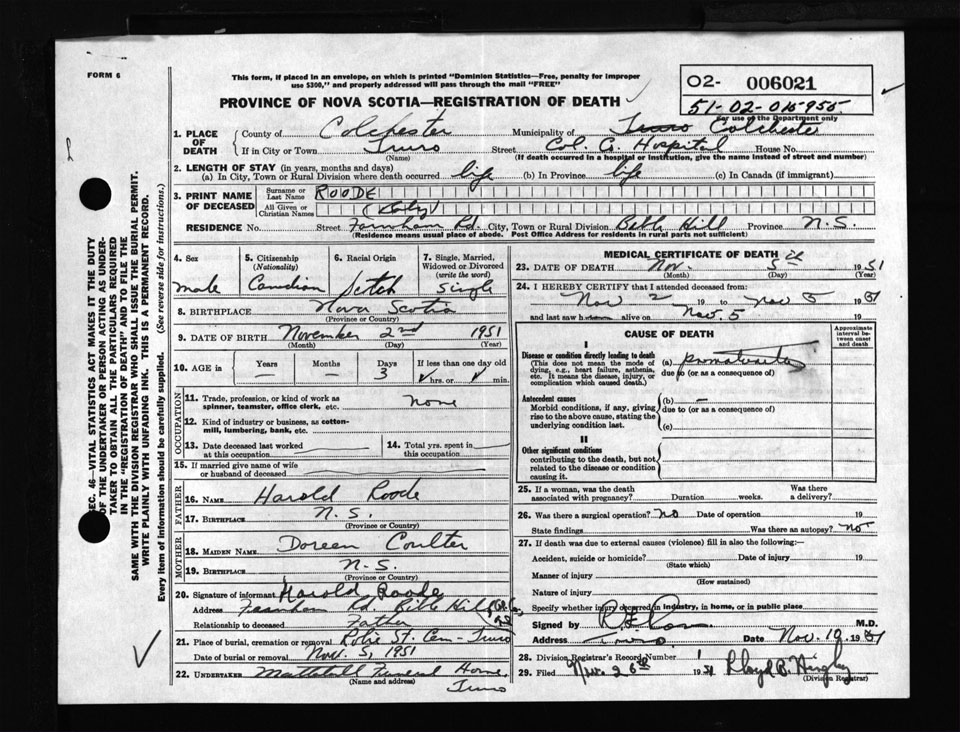 FORM 6
This form, if placed in an envelope, on which is printed "Dominion Statistics—Free, penalty for improper
use $300," and properly addressed will pass through the mail "FREE"
PROVINCE OF NOVA SCOTIA—REGISTRATION OF DEATH
02- 006021
51-02-015955
For use of the Department only
1. PLACE OF DEATH County of Colchester Municipality of Truro Colchester
If in City or Town Truro Street Col. Co. Hospital House No.
(Name) (If death occurred in a hospital or institution, give the name instead of street and number)
2. LENGTH OF STAY (in years, months and days)
(a) In City, Town or Rural Division where death occurred life (b) In Province life (c) In Canada (if immigrant)
3. PRINT NAME OF DECEASED Surname or Last Name ROODE
All Given or Christian Names (Baby)
RESIDENCE No. Street Farnham Rd. City, Town or Rural Division Bible Hill Province N.S.
(Residence means usual place of abode. Post Office Address for residents in rural parts not sufficient)
4. Sex male
5. Citizenship (Nationality) Canadian
6. Racial Origin
7. Single, Married, Widowed or Divorced (write the word) Single
8. BIRTHPLACE Nova Scotia
(Province or Country)
9. DATE OF BIRTH November 2nd 1951
(Month) (Day) (Year)
10. AGE in Years — Months — Days 3 If less than one day old hrs. or min.
OCCUPATION
11. Trade, profession, or kind of work as spinner, teamster, office clerk, etc. none
12. Kind of industry or business, as cotton-mill, lumbering, bank, etc.
13. Date deceased last worked at this occupation
14. Total yrs. spent in this occupation
15. If married give name of wife or husband of deceased
FATHER
16. NAME Harold Roode
17. BIRTHPLACE N.S.
(Province or Country)
MOTHER
18. MAIDEN NAME Doreen Coulter
19. BIRTHPLACE N.S.
(Province or Country)
20. Signature of informant Harold Roode
Address Farnham Rd. Bible Hill
Relationship to deceased Father
21. Place of burial, cremation or removal Robie St. Cem - Truro
Date of burial or removal Nov. 5, 1951
22. UNDERTAKER Mattatall Funeral Home,
(Name and address) Truro
MEDICAL CERTIFICATE OF DEATH
23. DATE OF DEATH Nov. 5 1951
(Month) (Day) (Year)
24. I HEREBY CERTIFY that I attended deceased from:
Nov 2 19 to Nov 5 1951
and last saw h alive on Nov. 5
CAUSE OF DEATH
Approximate interval between onset and death
I
Disease or condition directly leading to death
(This does not mean the mode of dying, e.g., heart failure, asthenia, etc. It means the disease, injury, or complication which caused death.)
(a) prematurity
due to (or as a consequence of)
Antecedent causes
Morbid conditions, if any, giving rise to the above cause, stating the underlying condition last.
(b) —
due to (or as a consequence of)
(c)
II
Other significant conditions
contributing to the death, but not related to the disease or condition causing it.
25. If a woman, was the death associated with pregnancy? Duration weeks. Was there a delivery?
26. Was there a surgical operation? no Date of operation 19
State findings Was there an autopsy? no
27. If death was due to external causes (violence) fill in also the following:—
Accident, suicide or homicide? Date of injury 19
(State which)
Manner of injury
(How sustained)
Nature of injury
Specify whether injury occurred in industry, in home, or in public place
Signed by M.D.
Address Truro Date Nov. 19 1951
28. Division Registrar's Record Number
29. Filed Nov. 26th 1951 Lloyd B. Hingley
(Division Registrar)
SEC. 46—VITAL STATISTICS ACT MAKES IT THE DUTY
OF THE UNDERTAKER OR PERSON ACTING AS UNDER-
TAKER TO OBTAIN ALL THE PARTICULARS REQUIRED
IN THE "REGISTRATION OF DEATH" AND TO FILE THE
SAME WITH THE DIVISION REGISTRAR WHO SHALL ISSUE THE BURIAL PERMIT.
WRITE PLAINLY WITH UNFADING INK. THIS IS A PERMANENT RECORD.
Every item of information should be carefully supplied. (See reverse side for instructions.)